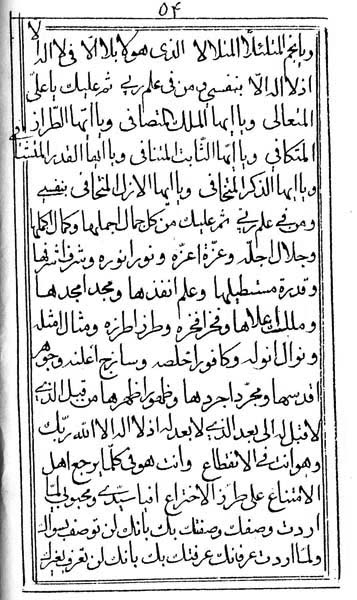 ٥۴
و یا نجم المتلئلأ المتلالا الذی هو کا بلا الا فی لا اله الا
اذ لا اله الا بنفسی و من فی علم ربی ثم علیك یا علی
المتعالی و یا ایها الملك المتصافی و یا ایها الطراز
المتکافی و یا ایها الثابت المتنافی و یا ایها القدیر
و یا ایها الذکر و یا ایها الازل بنفسی
و من فی علم ربی ثم علیك من کل جمال اجملها و کمال اکملها
و جلال اجله و عزة اعزه و نور انوره و شرف اشرفها
و قدرة مستطیلها و علم انفذها و مجد امجدها
و ملك اعلاها و فخر افخره و طرز اطرزه و مثال امثله
و نوال انوله و کافور اخلصه و ساذج اعلنه و جوهر
اقدسها و مجرد اجردها و ظهور اظهرها من قبل الذی
لا قبل له الی بعد الذی لا بعد له اذ لا اله الا الله ربك
و هو انت فی الانقطاع و انت هو فی کلما یرجع اهل
الامتناع علی طرز الاختراع افیا سیدی و محبوبی لما
اردت وصفك وصفتك بك بانك لن توصف بسواك
و لما اردت عرفانك عرفتك بك بانك لن تعرف بغیرك